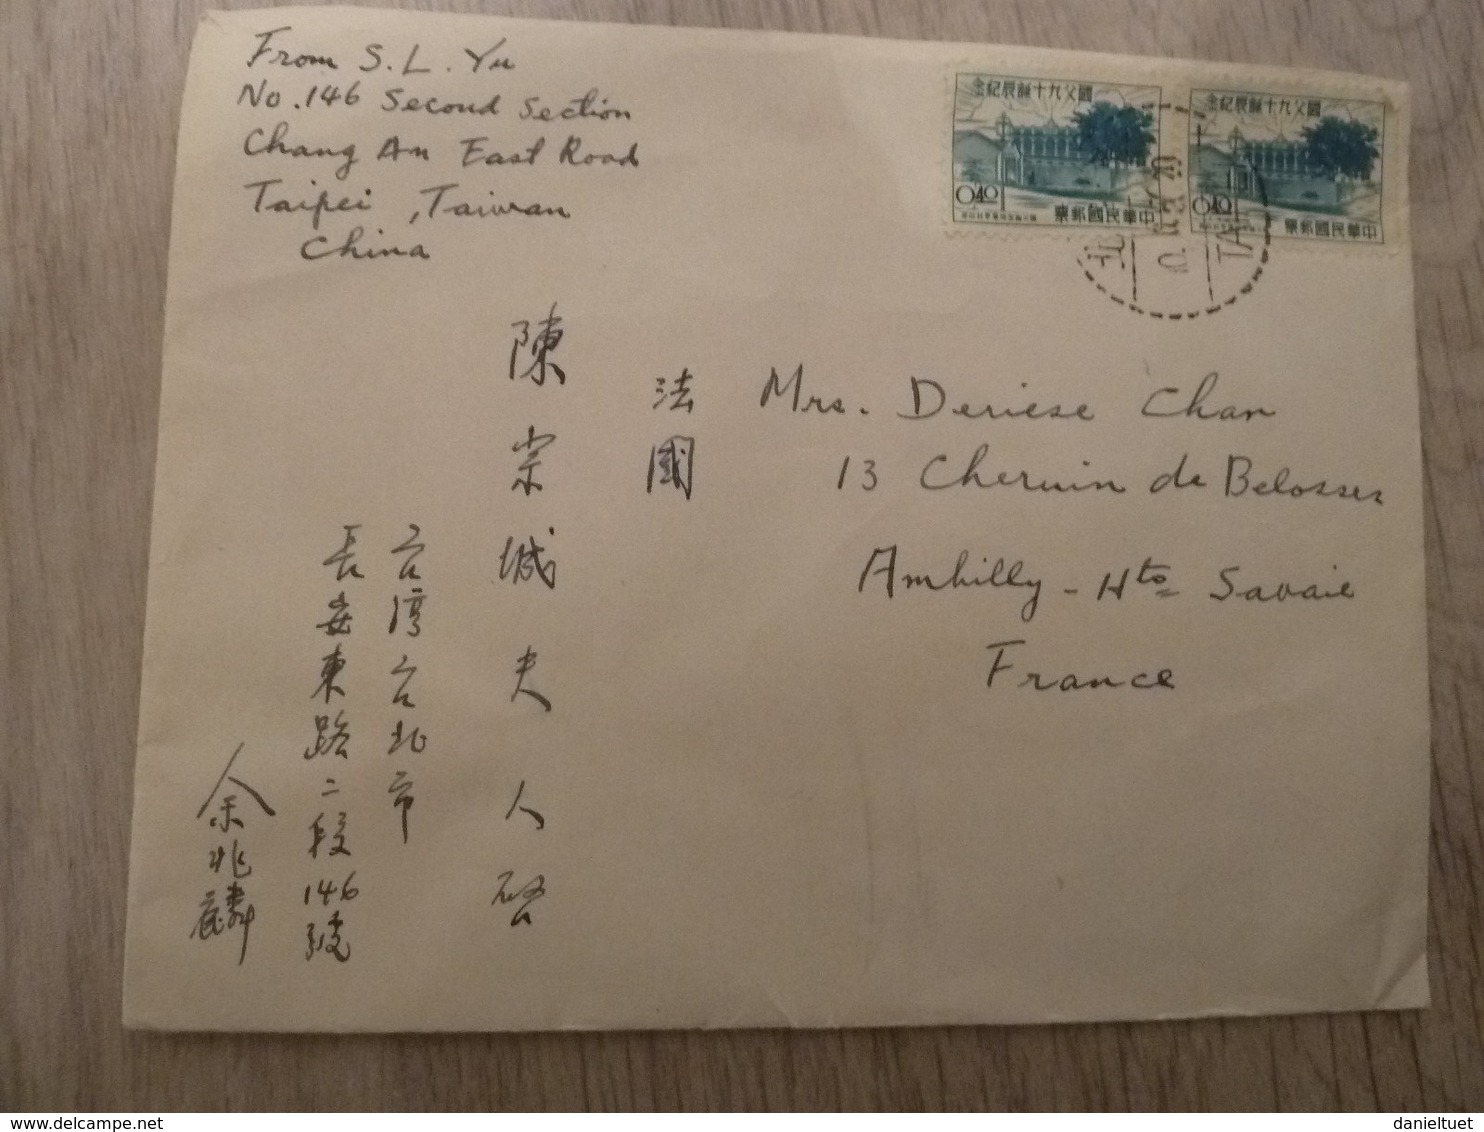 From S. L. Yu
No. 146 Second Section
Chang An East Road
Taipei, Taiwan
China
國父九十誕辰紀念
0.40
中華民國郵票
國父九十誕辰紀念
0.40
中華民國郵票
Mrs. Deriese Chan
13 Chemin de Belosses
Ambilly - Hte Savoie
France
法國
陳宗城夫人啓
台灣台北市
長安東路二段146號
余兆麟
danieltuet